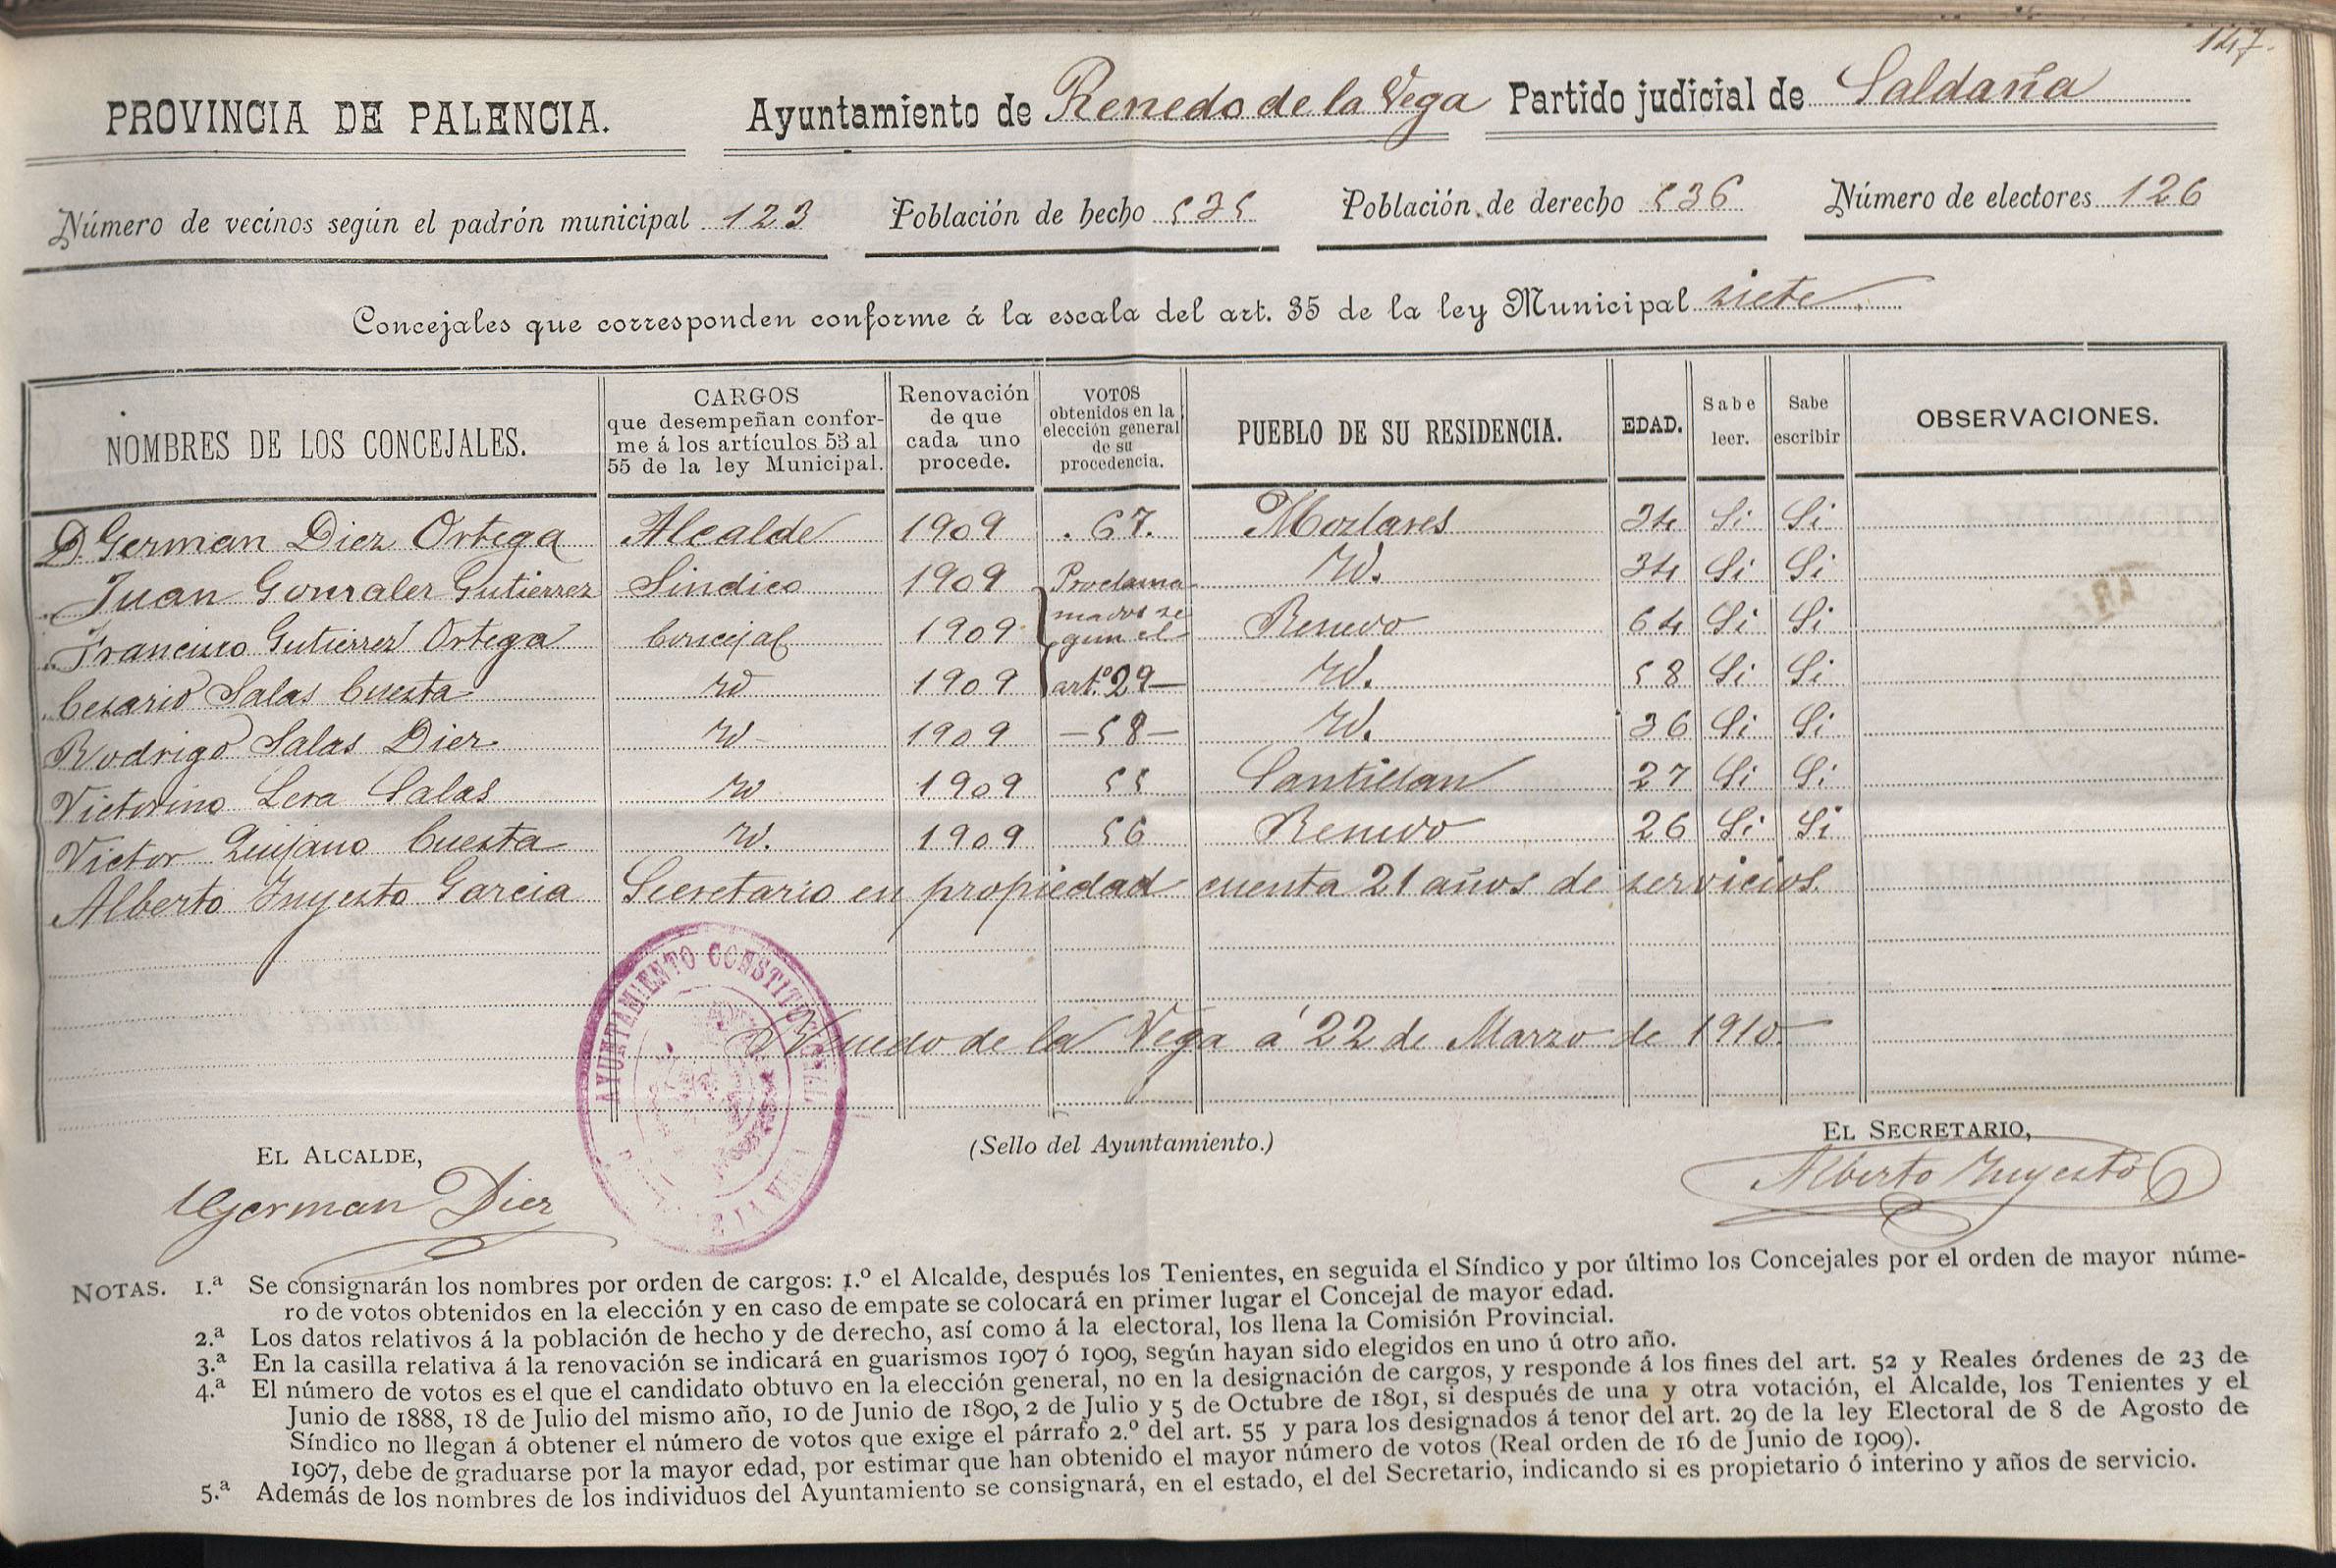 147.
PROVINCIA DE PALENCIA. Ayuntamiento de Renedo de la Vega Partido judicial de Saldaña
Número de vecinos según el padrón municipal 123 Población de hecho 535 Población de derecho 536 Número de electores 126
Concejales que corresponden conforme á la escala del art. 35 de la ley Municipal siete.
NOMBRES DE LOS CONCEJALES. CARGOS que desempeñan conforme á los artículos 53 al 55 de la ley Municipal. Renovación de que cada uno procede. VOTOS obtenidos en la elección general de su procedencia. PUEBLO DE SU RESIDENCIA. EDAD. Sabe leer. Sabe escribir OBSERVACIONES.
D. German Diez Ortega Alcalde 1909 67. Mozlares 34 Si Si
Juan Gonzalez Gutierrez Sindico 1909 Proclama- Id. 34 Si Si
Francisco Gutierrez Ortega Concejal 1909 mados se gun el Renedo 64 Si Si
Cesario Salas Cuesta id 1909 art.º 29 Id. 58 Si Si
Rodrigo Salas Diez id 1909 58 Id. 36 Si Si
Victorino Lera Salas id 1909 55 Santillan 27 Si Si
Victor Quijano Cuesta id. 1909 56 Renedo 26 Si Si
Alberto Inyesto Garcia Secretario en propiedad cuenta 21 años de servicios.
Renedo de la Vega á 22 de Marzo de 1910.
AYUNTAMIENTO CONSTITUCIONAL
EL ALCALDE, (Sello del Ayuntamiento.) EL SECRETARIO,
German Diez Alberto Inyesto
NOTAS. 1.ª Se consignarán los nombres por orden de cargos: 1.º el Alcalde, después los Tenientes, en seguida el Síndico y por último los Concejales por el orden de mayor núme-
ro de votos obtenidos en la elección y en caso de empate se colocará en primer lugar el Concejal de mayor edad.
2.ª Los datos relativos á la población de hecho y de derecho, así como á la electoral, los llena la Comisión Provincial.
3.ª En la casilla relativa á la renovación se indicará en guarismos 1907 ó 1909, según hayan sido elegidos en uno ú otro año.
4.ª El número de votos es el que el candidato obtuvo en la elección general, no en la designación de cargos, y responde á los fines del art. 52 y Reales órdenes de 23 de
Junio de 1888, 18 de Julio del mismo año, 10 de Junio de 1890, 2 de Julio y 5 de Octubre de 1891, si después de una y otra votación, el Alcalde, los Tenientes y el
Síndico no llegan á obtener el número de votos que exige el párrafo 2.º del art. 55 y para los designados á tenor del art. 29 de la ley Electoral de 8 de Agosto de
1907, debe de graduarse por la mayor edad, por estimar que han obtenido el mayor número de votos (Real orden de 16 de Junio de 1909).
5.ª Además de los nombres de los individuos del Ayuntamiento se consignará, en el estado, el del Secretario, indicando si es propietario ó interino y años de servicio.